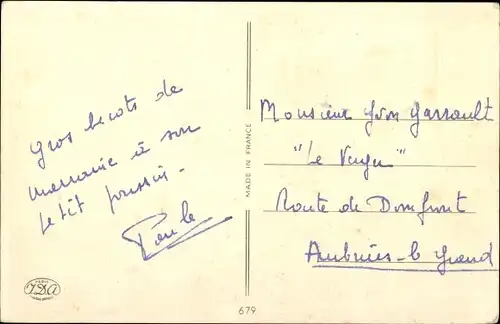 Gros becots de
marraine à son
petit poussin.
Paule
MADE IN FRANCE
Monsieur Garrault
"Le Verger"
Route de Domfront
Ambrières-le Grand
679